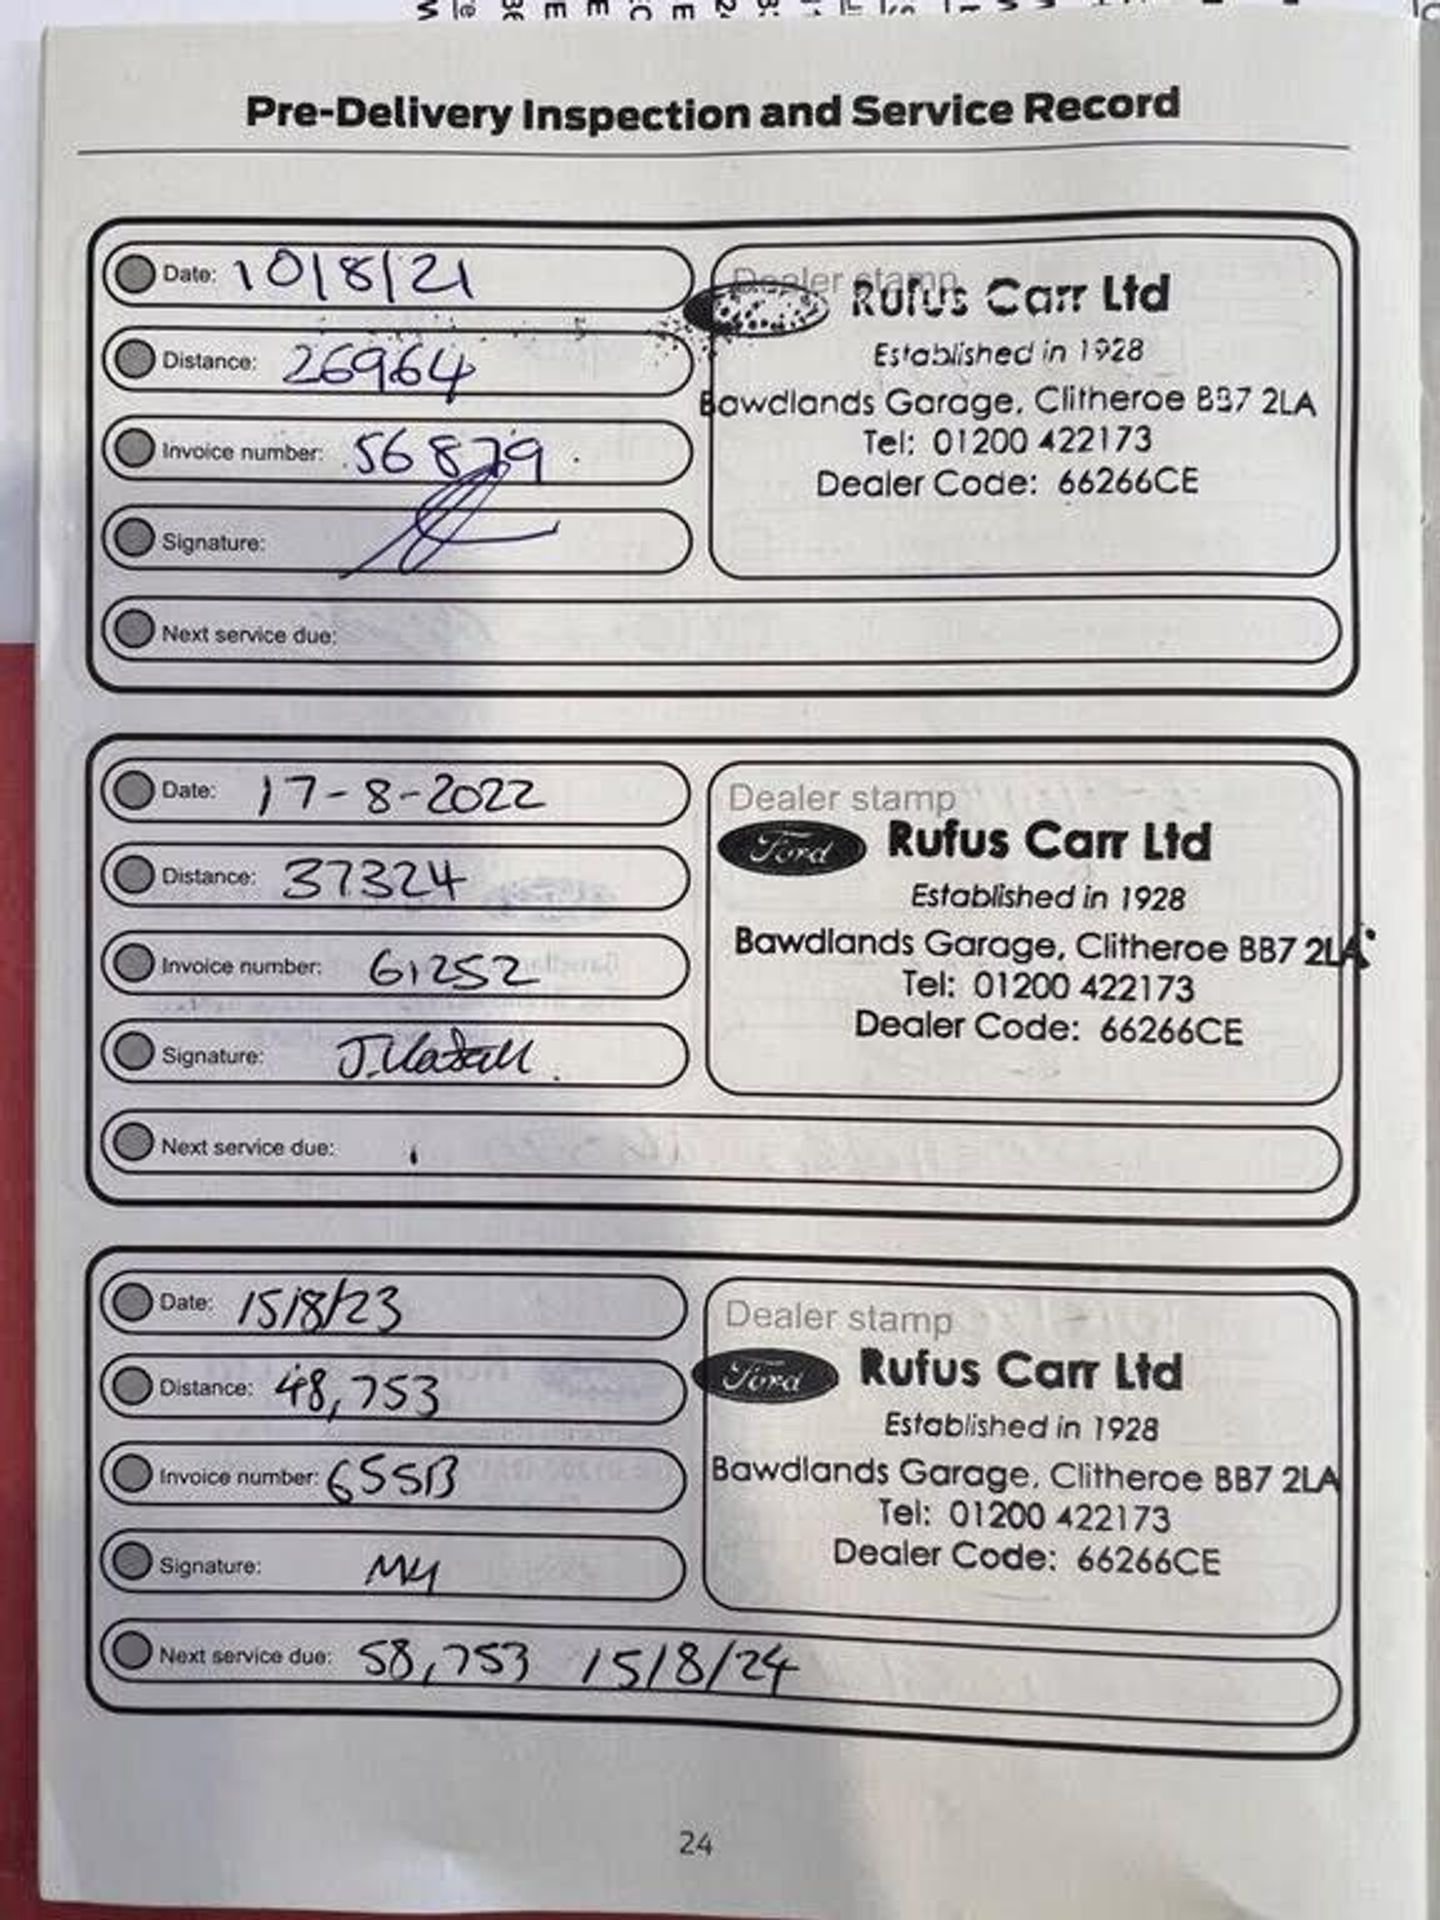 Pre-Delivery Inspection and Service Record
Date: 10/8/21
Distance: 26964
Invoice number: 56879
Signature:
Next service due:
Dealer stamp
Rufus Carr Ltd
Established in 1928
Bawdlands Garage, Clitheroe BB7 2LA
Tel: 01200 422173
Dealer Code: 66266CE
Date: 17-8-2022
Distance: 37324
Invoice number: 61252
Signature:
Next service due:
Dealer stamp
Ford Rufus Carr Ltd
Established in 1928
Bawdlands Garage, Clitheroe BB7 2LA
Tel: 01200 422173
Dealer Code: 66266CE
Date: 15/8/23
Distance: 48,753
Invoice number: 65513
Signature:
Next service due: 58,753 15/8/24
Dealer stamp
Ford Rufus Carr Ltd
Established in 1928
Bawdlands Garage, Clitheroe BB7 2LA
Tel: 01200 422173
Dealer Code: 66266CE
24